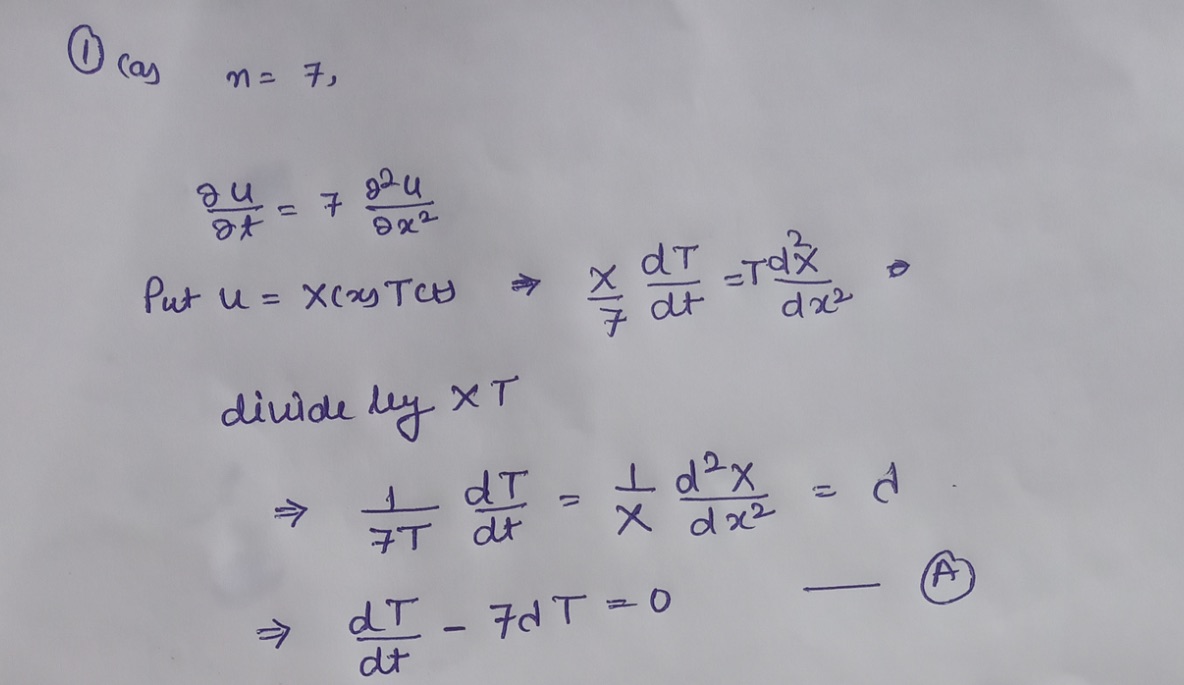 ① (a) n = 7,
∂u/∂t = 7 ∂²u/∂x²
Put u = X(x) T(t) ⇒ X/7 dT/dt = T d²X/dx² ⇒
divide by XT
⇒ 1/7T dT/dt = 1/X d²X/dx² = d
⇒ dT/dt - 7dT = 0 — Ⓐ